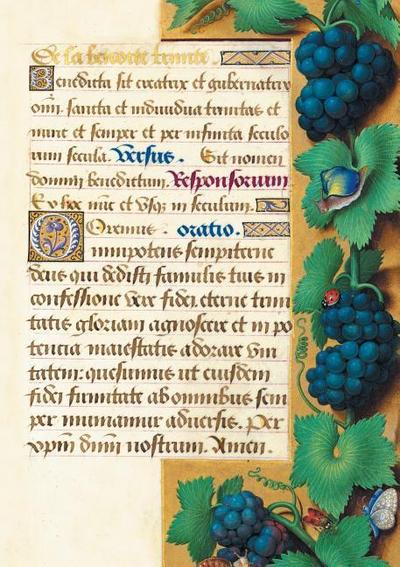 De la benoite trinite.
Benedicta sit creatrix et gubernatrix
oim. sancta et individua trinitas et
nunc et semper et per infinita seculo
rum secula. Versus. Sit nomen
domini benedictum. Responsorium
Ex hoc nūc et Usq in seculum.
Oremus. oratio.
Omnipotens sempiterne
deus qui dedisti famulis tuis in
confessione vere fidei. eterne trini
tatis gloriam agnoscere et in po
tencia maiestatis adorare vni
tatem: quesumus ut eiusdem
fidei firmitate ab omnibus sem
per muniamur adversis. Per
xpm dnm nostrum. Amen.